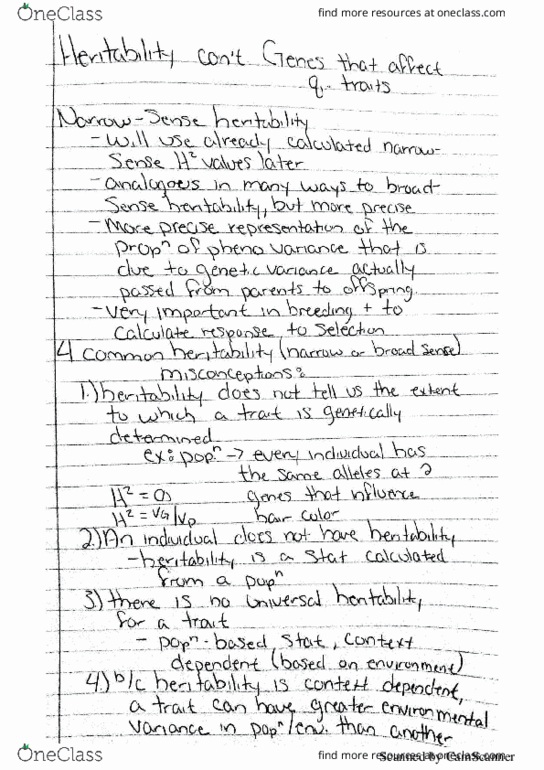 OneClass
find more resources at oneclass.com
Heritability con't Genes that affect
q. traits
Narrow-Sense heritability
- Will use already calculated narrow-
Sense H² values later
- analogous in many ways to broad-
Sense heritability, but more precise
- More precise representation of the
propⁿ of pheno variance that is
due to genetic variance actually
passed from parents to offspring.
- Very important in breeding + to
Calculate response to selection
4 common heritability (narrow or broad sense)
misconceptions:
1.) heritability does not tell us the extent
to which a trait is genetically
determined
ex: popⁿ → every individual has
the same alleles at 2
H² = 0 genes that influence
H² = VG/Vp hair color
2.) An individual does not have heritability
- heritability is a Stat calculated
from a popⁿ
3) there is no universal heritability
for a trait
- popⁿ-based stat, context
dependent (based on environment)
4.) b/c heritability is context dependent,
a trait can have greater environmental
variance in popⁿ/env. than another
OneClass
find more resources at oneclass.com
Scanned by CamScanner